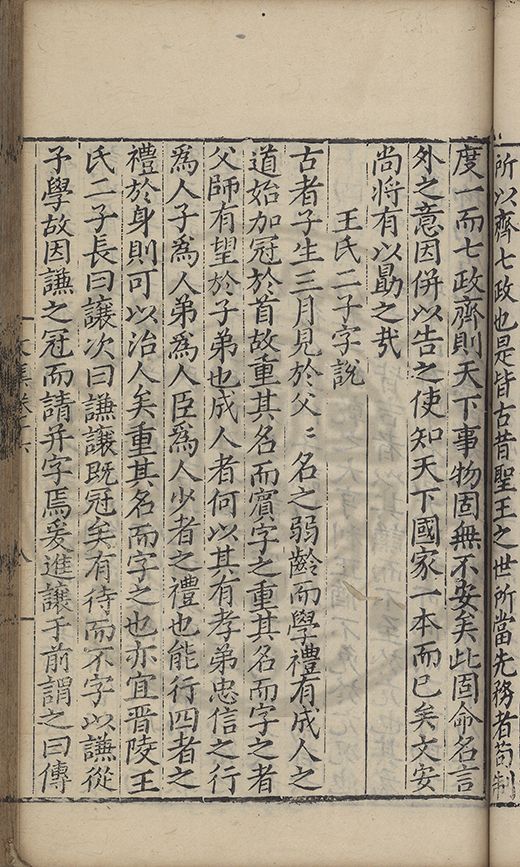 所以齊七政也是皆古昔聖王之世所當先務者苟制
度一而七政齊則天下事物固無不安矣此固命名言
外之意因併以告之使知天下國家一本而已矣文安
尚將有以勗之哉
王氏二子字說
古者子生三月見於父〻名之弱齡而學禮有成人之
道始加冠於首故重其名而賓字之重其名而字之者
父師有望於子弟也成人者何以其有孝弟忠信之行
為人子為人弟為人臣為人少者之禮也能行四者之
禮於身則可以治人矣重其名而字之也亦宜晋陵王
氏二子長曰讓次曰謙讓既冠矣有待而不字以謙從
予學故因謙之冠而請并字焉爰進讓于前謂之曰傳